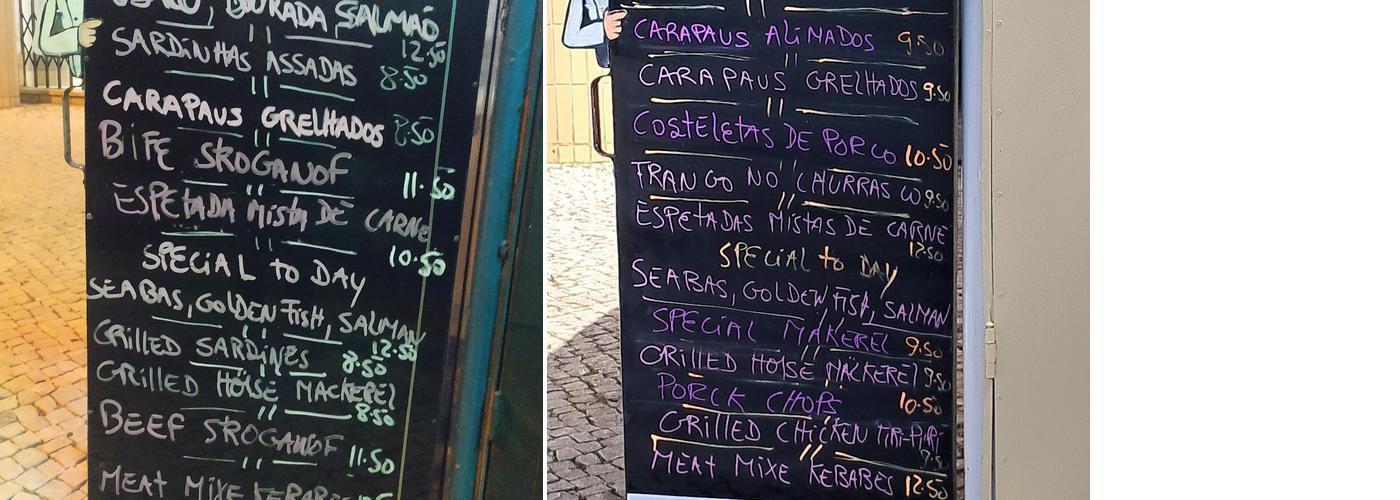 DOURADA SALMAO
12.50
SARDINHAS ASSADAS
8.50
CARAPAUS GRELHADOS 8.50
BIFE SROGANOF
11.50
ESPETADA MISTA DE CARNE
10.50
SPECIAL to DAY
SEABAS, GOLDEN FISH, SALMAN
12.50
GRILLED SARDINES 8.50
GRILLED HOISE MACKEREL
8.50
BEEF SROGANOF 11.50
MEAT MIXE
CARAPAUS ALIMADOS 9.50
CARAPAUS GRELHADOS 9.50
COSTELETAS DE PORCO 10.50
FRANGO NO CHURRASCO 9.50
ESPETADAS MISTAS DE CARNE
12.50
SPECIAL to DAY
SEABAS, GOLDEN FISH, SALMAN
SPECIAL MAKEREL 9.50
GRILLED HOISE MACKEREL 9.50
PORCK CHOPS 10.50
GRILLED CHICKEN PIRI-PIRI
MEAT MIXE KEBABES 12.50